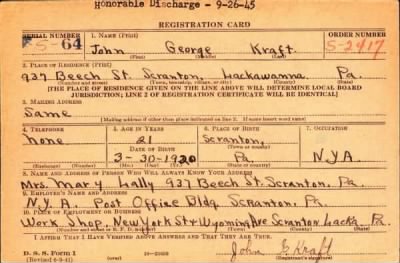 Honorable Discharge - 9-26-45
REGISTRATION CARD
SERIAL NUMBER 1. NAME (Print) ORDER NUMBER
S-64 John George Kraft. S-2417
(First) (Middle) (Last)
2. PLACE OF RESIDENCE (Print)
937 Beech St. Scranton, Lackawanna, Pa.
(Number and street) (Town, township, village, or city) (County) (State)
[THE PLACE OF RESIDENCE GIVEN ON THE LINE ABOVE WILL DETERMINE LOCAL BOARD
JURISDICTION; LINE 2 OF REGISTRATION CERTIFICATE WILL BE IDENTICAL]
3. MAILING ADDRESS
Same
[Mailing address if other than place indicated on line 2. If same insert word same]
4. TELEPHONE 5. AGE IN YEARS 6. PLACE OF BIRTH 7. OCCUPATION
None 21 Scranton,
DATE OF BIRTH (Town or county)
3-30-1920 Pa. N.Y.A.
(Exchange) (Number) (Mo.) (Day) (Yr.) (State or country)
8. NAME AND ADDRESS OF PERSON WHO WILL ALWAYS KNOW YOUR ADDRESS
Mrs. Mary Lally 937 Beech St. Scranton, Pa.
9. EMPLOYER'S NAME AND ADDRESS
N.Y.A. Post Office Bldg. Scranton, Pa.
10. PLACE OF EMPLOYMENT OR BUSINESS
Work Shop, New York St & Wyoming Ave Scranton Lacka. Pa.
I AFFIRM THAT I HAVE VERIFIED ABOVE ANSWERS AND THAT THEY ARE TRUE.
D. S. S. Form 1 John G Kraft